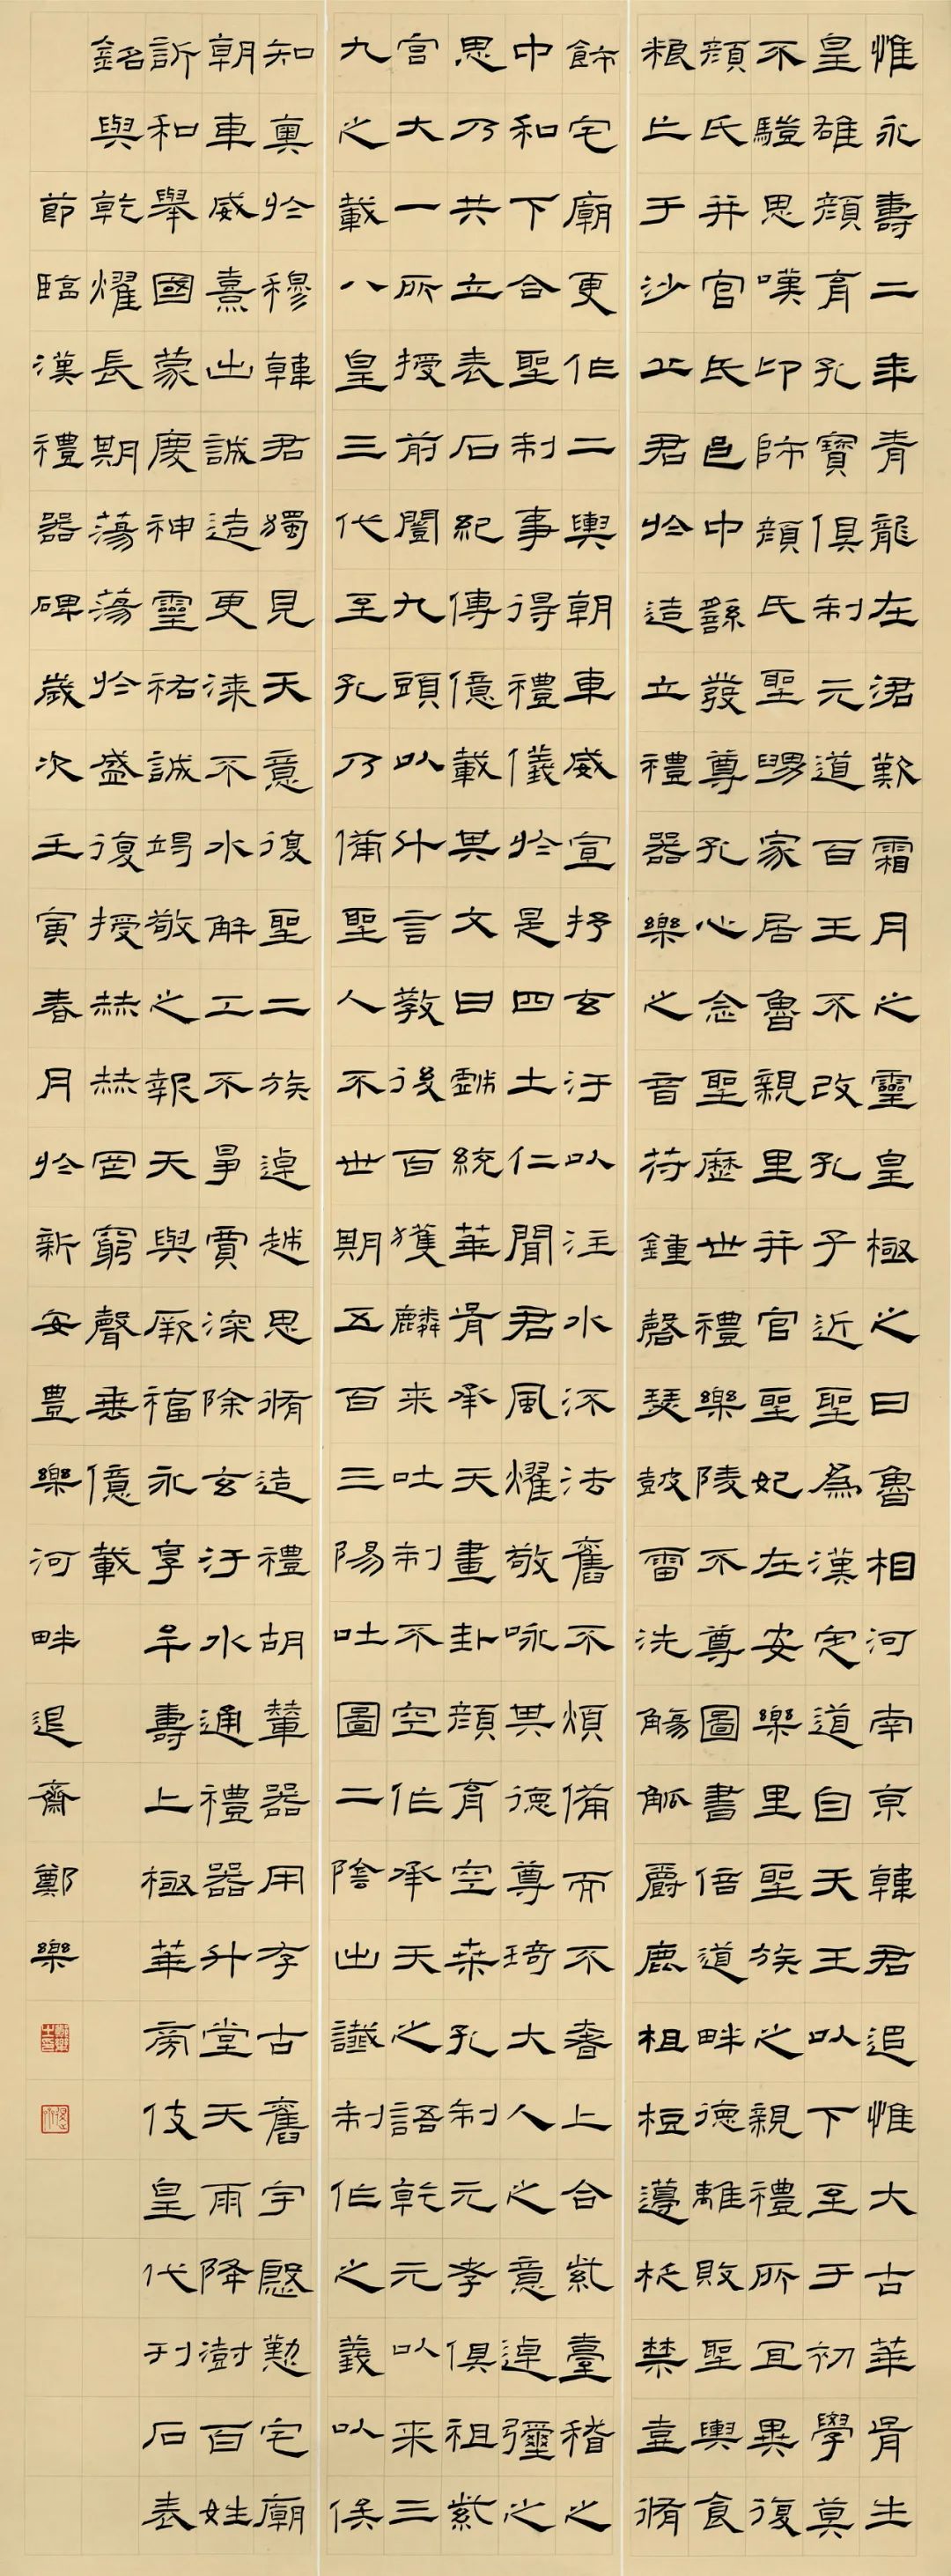 惟永壽二年青龍在涒歎霜月之靈皇極之日魯相河南京韓君追惟大古華胥生
皇雄顏育孔寶俱制元道百王不改孔子近聖為漢定道自天王以下至于初學莫
不驥思嘆卬師顏氏聖舅家居魯親里并官聖妃在安樂里聖族之親禮所宜異復
顏氏并官氏邑中繇發尊孔心念聖歷世禮樂陵不尊圖書倍道畔德離敗聖輿食
粮亡于沙丘君於造立禮器樂之音苻鍾磬瑟鼓雷洗觴觚爵鹿柤梪籩柉禁壺脩
飾宅廟更作二輿朝車威宣抒玄汙以注水流法舊不煩備而不奢上合紫臺稽之
中和下合聖制事得禮儀於是四土仁聞君風燿敬咏其德尊琦大人之意逴彌之
思乃共立表石紀傳億載其文曰戲統華胥承天畫卦顏育空桑孔制元孝俱祖紫
宮大一所授前闓九頭以什言教後百獲麟来吐制不空作承天之語乾元以来三
九之載八皇三代至孔乃備聖人不世期五百三陽吐圖二陰出讖制作之義以俟
知奧於穆韓君獨見天意復聖二族逴越思脩造禮胡輦器用存古舊宇慇懃宅廟
朝車威熹出誠造更漆不水解工不爭賈深除玄汙水通禮器升堂天雨降澍百姓
訢和舉國蒙慶神靈祐誠竭敬之報天與厥福永享牟壽上極華旁伎皇代刊石表
銘與乾燿長期蕩蕩於盛復授赫赫罔窮聲垂億載
節臨漢禮器碑歲次壬寅春月於新安豊樂河畔退齋鄭樂